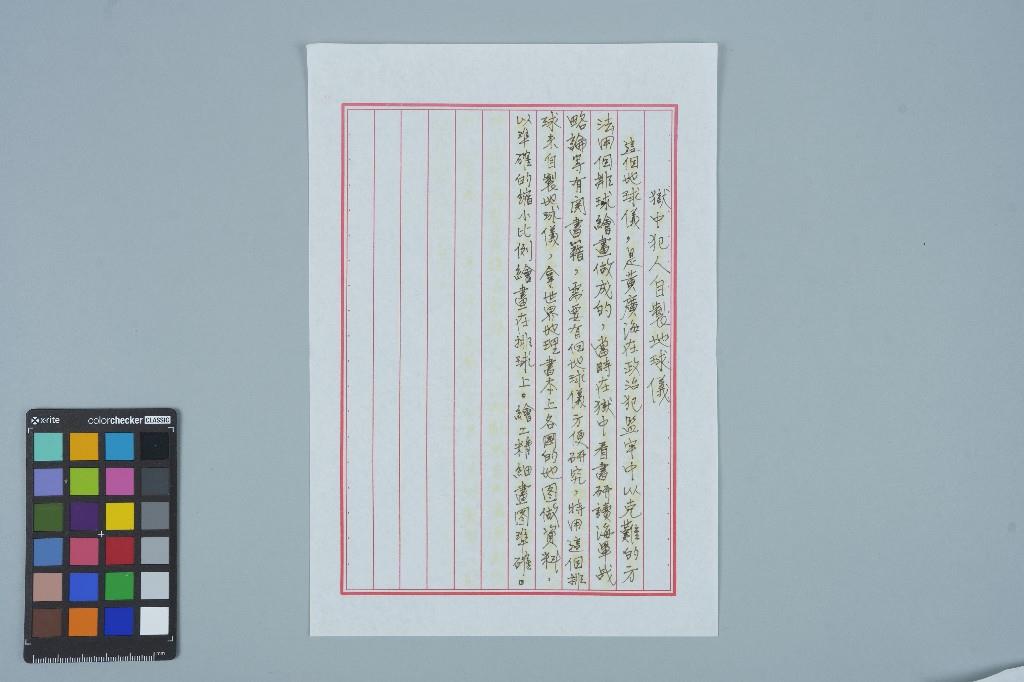 獄中犯人自製地球儀
這個地球儀,是黃廣海在政治犯監牢中以克難的方
法用個排球繪畫做成的,當時在獄中看書研讀海軍战
略論等有関書籍,需要有個地球儀方便研究,特用這個排
球來自製地球儀,拿世界地理書本上各國的地图做資料,
以準確的縮小比例繪畫在排球上。繪工精細畫图準確。
x-rite
colorchecker CLASSIC
mm